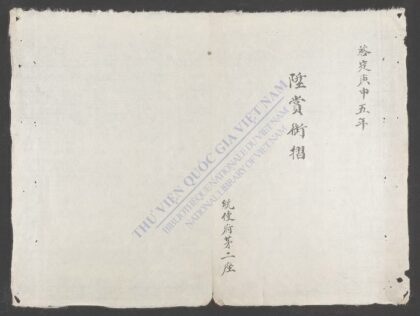 啓定庚申五年
陞賞銜摺
統使府第二座
THƯ VIỆN QUỐC GIA VIỆT NAM
BIBLIOTHÈQUE NATIONALE DU VIETNAM
NATIONAL LIBRARY OF VIETNAM